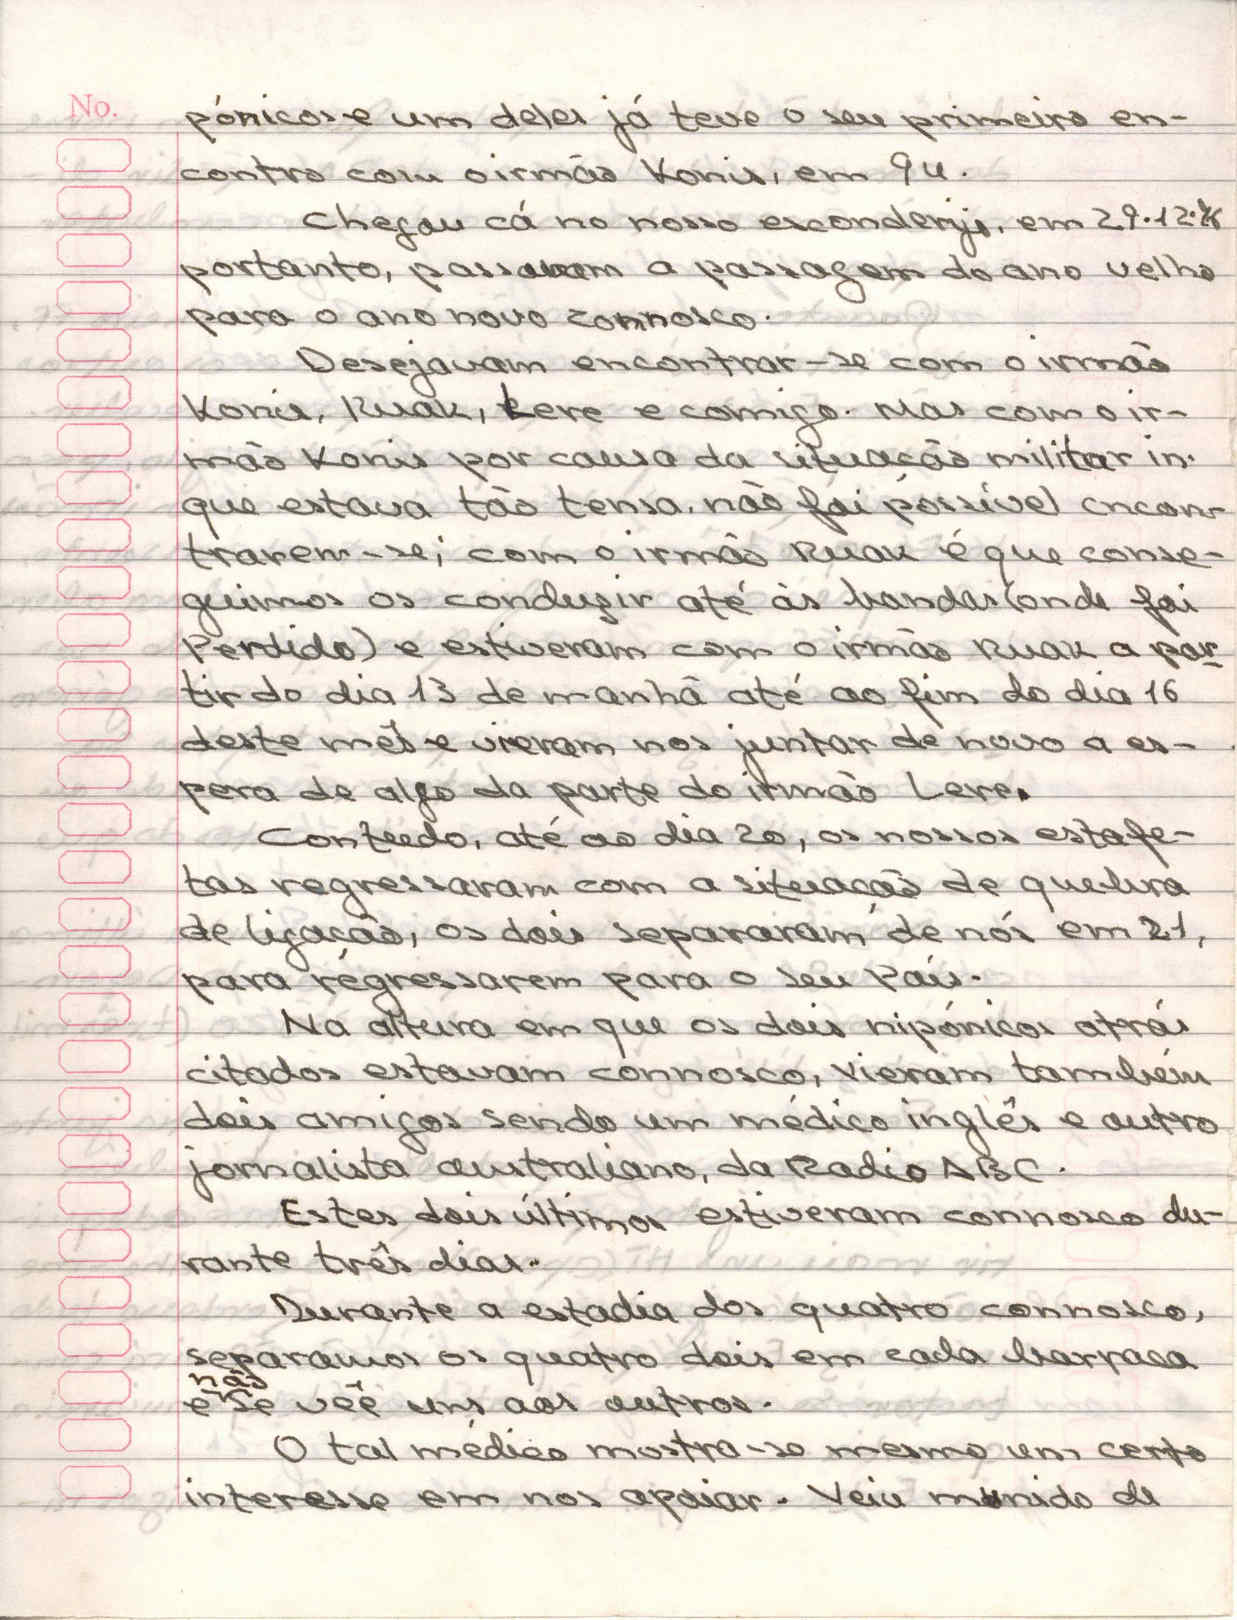 No.
pónicos e um deles já teve o seu primeiro en-
contro com o irmão Konis, em 94.
Chegou cá no nosso esconderijo, em 29.12.
portanto, passavam a passagem do ano velho
para o ano novo connosco.
Desejavam encontrar-se com o irmão
Konis, Ruak, Lere e comigo. Mas com o ir-
mão Konis por causa da situação militar in.
que estava tão tensa, não foi possível encon-
trarem-se; com o irmão Ruak é que conse-
guimos os conduzir até às bandas (onde foi
Perdido) e estiveram com o irmão Ruak a par-
tir do dia 13 de manhã até ao fim do dia 16
deste mês e vieram nos juntar de novo a es-
pera de algo da parte do irmão Lere.
Contudo, até ao dia 20, os nossos estafe-
tas regressaram com a situação de quebra
de ligação, os dois separaram de nós em 21,
para regressarem para o seu País.
Na altura em que os dois nipónicos atrás
citados estavam connosco, vieram também
dois amigos sendo um médico inglês e outro
jornalista australiano, da Radio ABC.
Estes dois últimos estiveram connosco du-
rante três dias.
Durante a estadia dos quatro connosco,
separamos os quatro dois em cada barraca
não
e se vêe uns aos outros.
O tal médico mostra-se mesmo um certo
interesse em nos apoiar. Veiu munido de